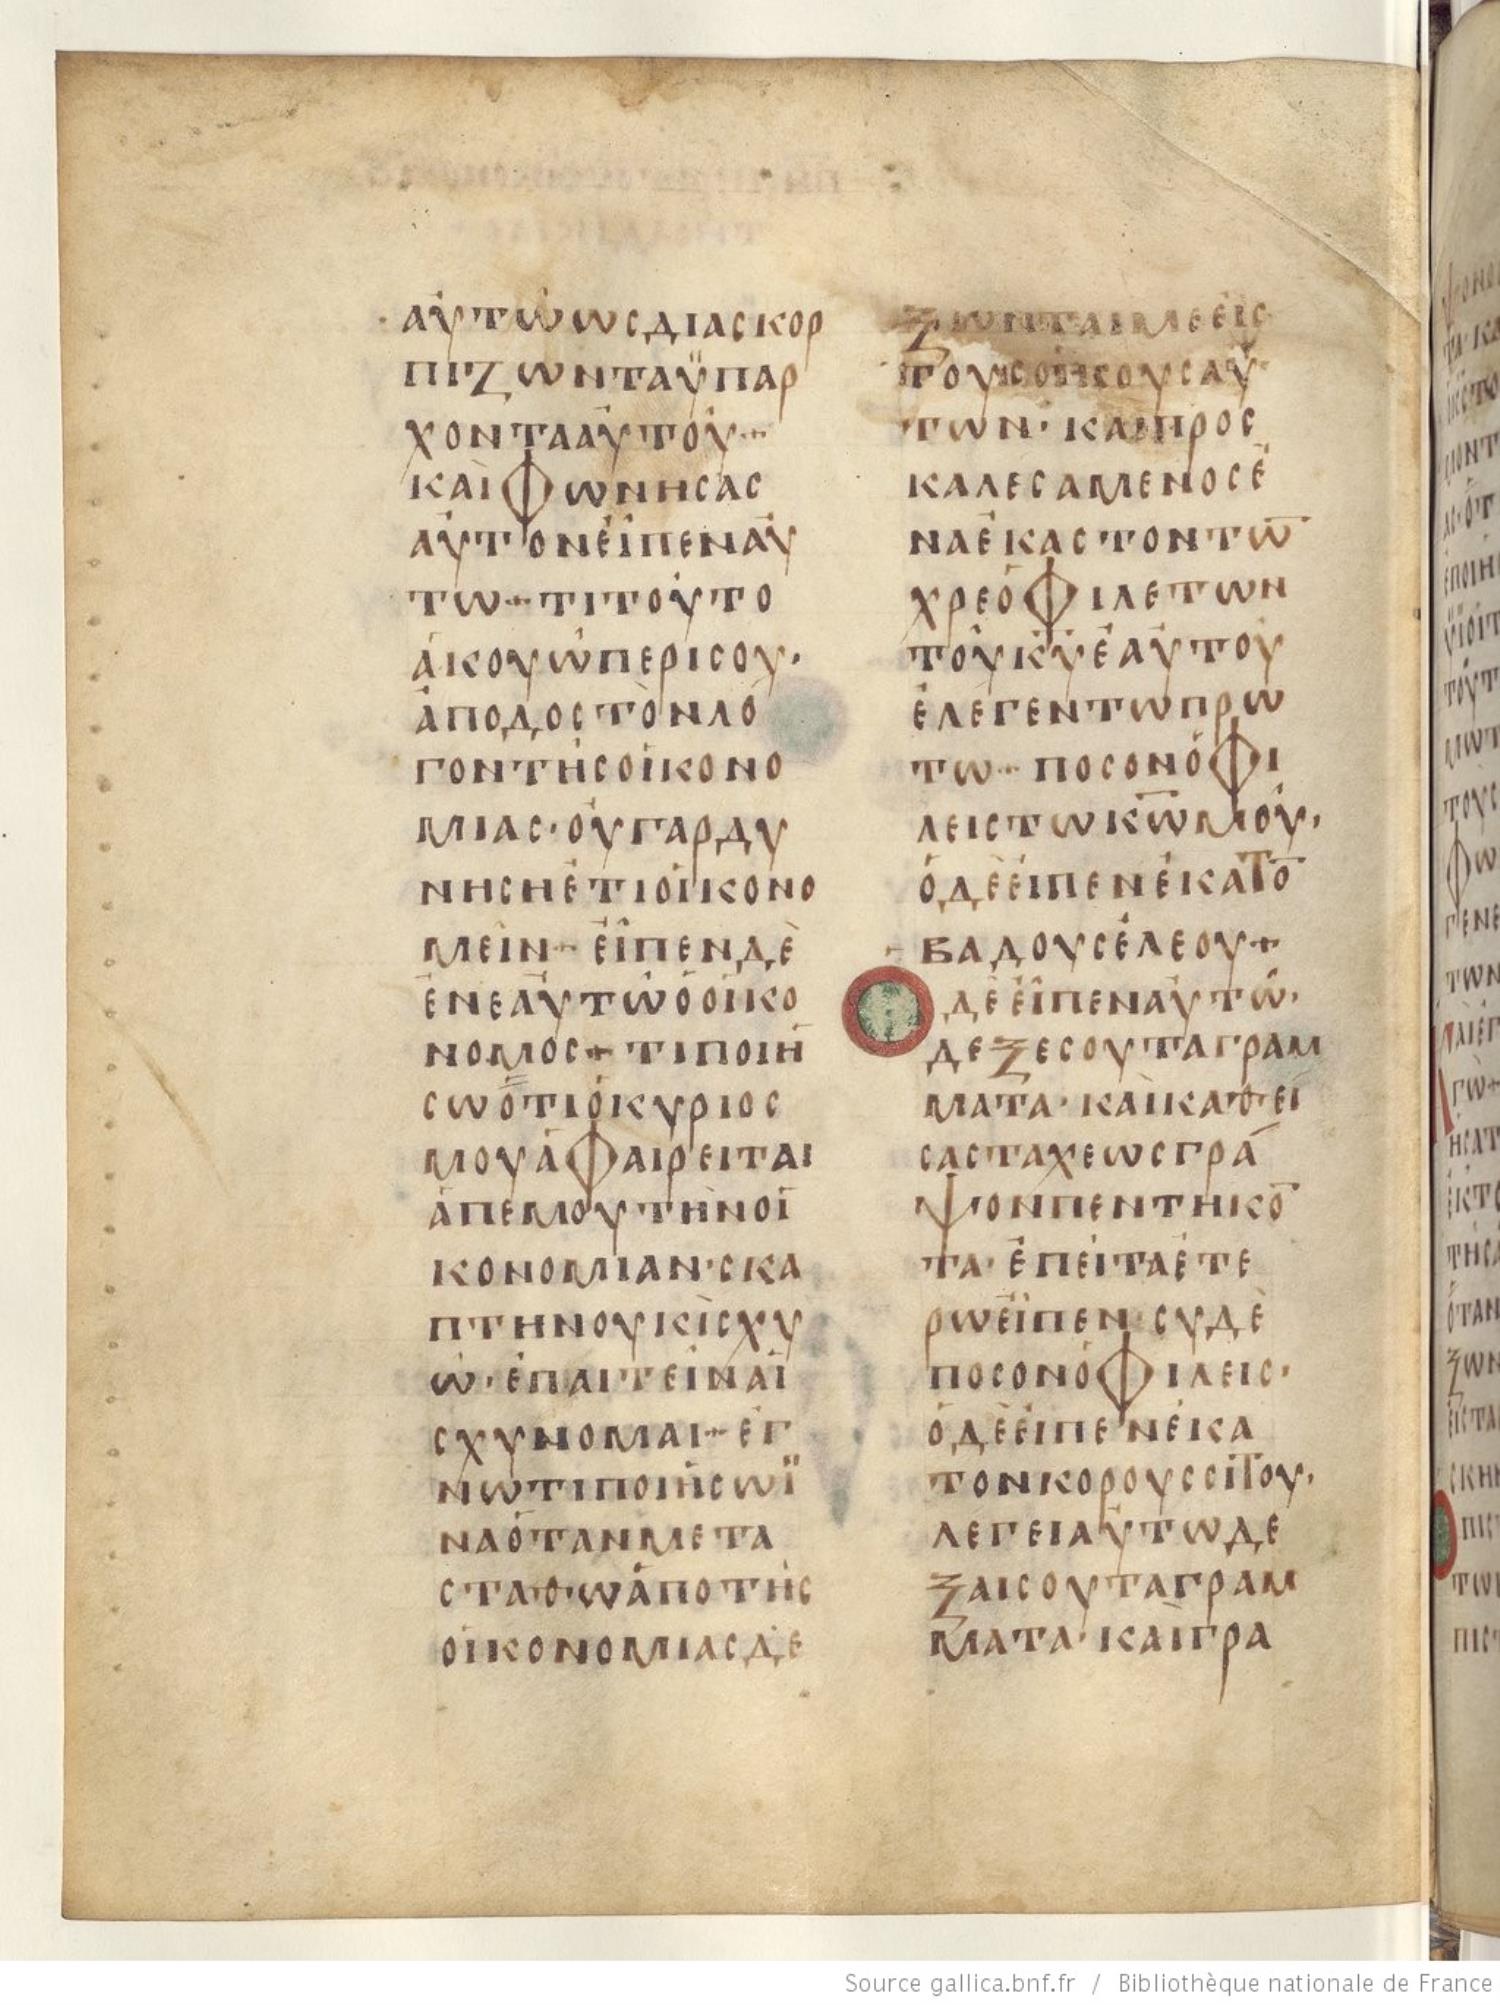 ἀυτῶ ὡς διασκορ
πιζωντα ϋπαρ
χοντα αὑτοῦ +
καὶ φωνησας
ἀυτον εἶπεν αὐ
τω + τι τοῦτο
ἀκουω περι σου·
ἀποδος τὸν λό
γον τῆς οἰκονο
μιας· οὐ γαρ δυ
νησηἔτι οἰκονο
μεῖν + εἶπεν δὲ
ἐν ἑαυτῶ ὁ οἰκο
νομος + τι ποιή
σω ὅτι ὁ κυριος
μου ἀφαιρειται
ἀπ εμου τὴν οἰ
κονομιαν· σκα
πτην ουκ ἰσχυ
ω· ἐπαιτεῖν αἰ
σχυνομαι + ἐγ
νω τι ποιήσω ϊ
να ὅταν μετα
σταθω ἀπο τῆς
οἰκονομιας δε
ξωνται με εἰς
τους οἰκους αὑ
των· και προς
καλεσαμενος ἑ
να ἑκαστον τῶ̅
χρεοφιλετων
τοῦ κ̅υ̅ ἑαυτοῦ
ἐλεγεν τω πρω
τω + ποσον ὀφι
λεις τω κ̅ω̅ μοῦ·
ὁ δὲ εἶπεν ἑκατο̅
βαδους ἐλεου +
Ο δὲ εἶπεν αὐτῶ·
δεξε σου τα γραμ
ματα· καὶ καθεί
σας ταχεως γρά
ψον πεντηκο̅
τα· ἐπειτα ἑτε
ρω εἶπεν· συ δὲ
ποσον ὀφιλεις·
ὁ δὲ εἶπεν ἑκα
τον κορους σίτου·
λεγει αὐτω δε
ξαι σου τα γραμ
ματα· καὶ γρα
Source gallica.bnf.fr / Bibliothèque nationale de France